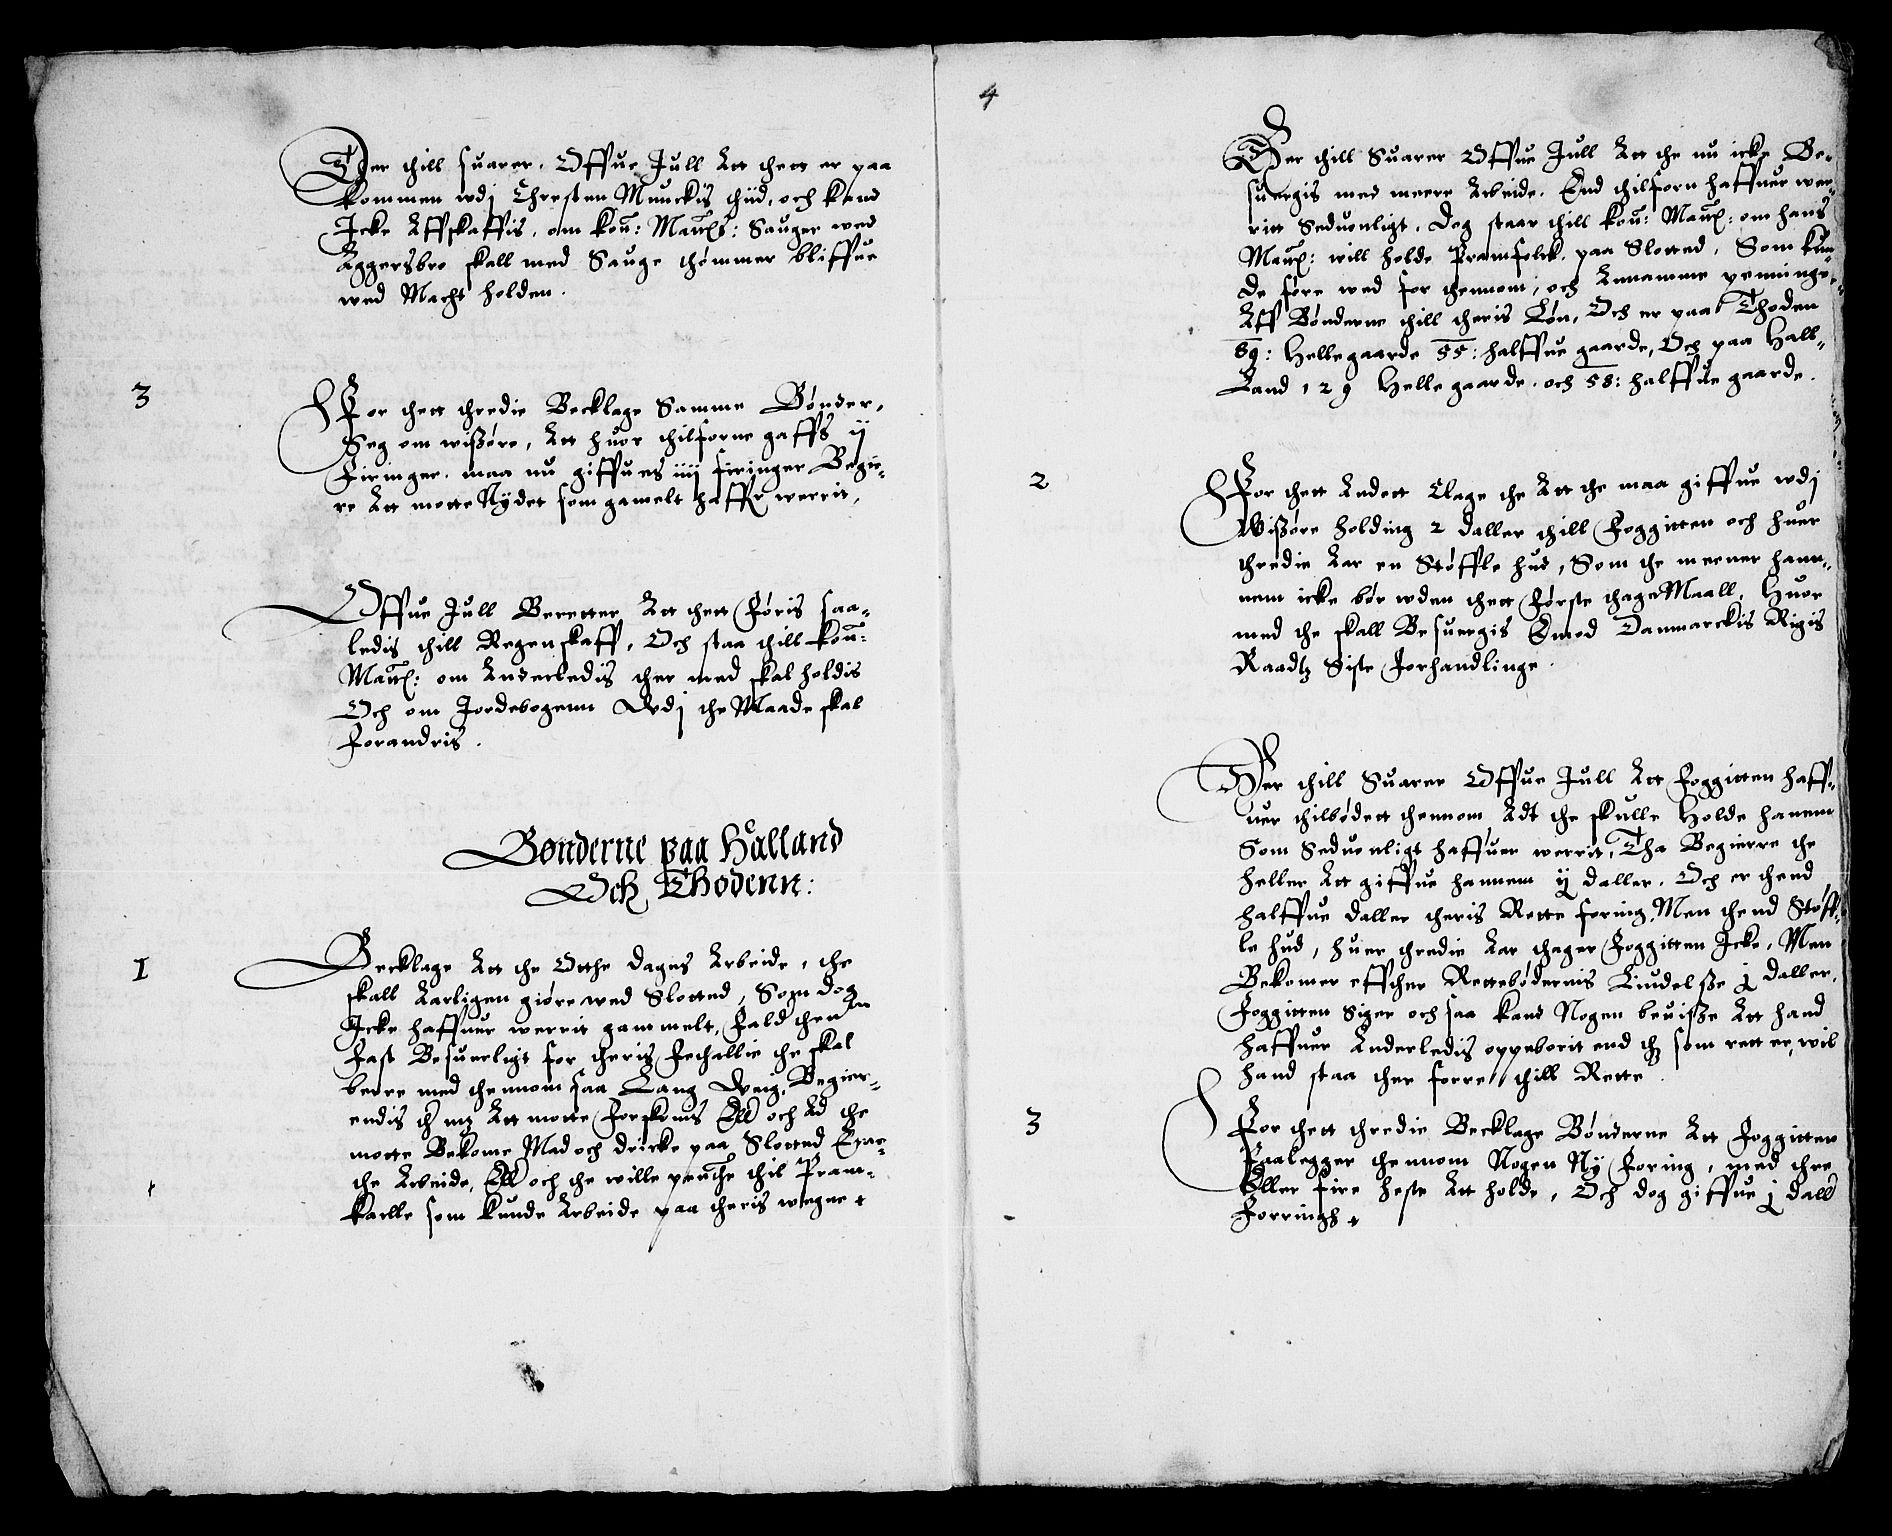 Der thill suarer. Offue Jull Att thett er paa
kommen wdj Chresten Munckis thiid, och kand
Icke Affskaffis. om kon: Maytz: Sauger wed
Aggersbro skall med Sauge thømmer bliffue
wed Macht holden.
3
For thett thredie Becklage Samme Bønder,
Seg om wißøre, Att huor thilforne gaffs ij
Firinger. maa nu giffues iiij firinger Begie-
re Att motte Nydet som gamelt haffr werrit,
Offue Jull Beretter Att thett føris saa-
ledis thill Regenskaff, Och staa thill kon:
Maytt: om Anderledis ther med skal holdis
Och om Jordebogenn Wdj the Maade skal
forandris.
Bønderne paa Halland
Och Thodenn:
1
Becklage Att the Otthe dages Arbeide, the
skall Aarligen giøre wed Slotted, Som dog
Icke haffuer werrit gammelt, fald thennom
fast Besuerligt for theris fethallie the skal
berre med thennom saa Lang Weig, Begier-
endis ther Att motte forskonis Ell och Ad the
motte Bekome Mad och dricke paa Slotted Efac-
the Arbeide, Ell och the wille penthe thil Pram-
karlle som kunde Arbeide paa theris wegne
4
Her thill Suarer Offue Jull Att the nu icke Be-
suergis med meere Arbeide. End thilforn haffuer wer-
ritt Seduonligt. Dog staar thill kon: Maytt: om hans
Maytt: will holde Pramfolck paa Slotted. Som kun-
de føre wed for thennom, och Annamme penninge
Aff Bønderne thill theris Løn, Och er paa Thoden
89: Hellegaarde 55: halffue gaarde, Och paa Hall-
Land 129 Helle gaarde. och 58: halffue gaarde.
2
For thett Andett Clage the Att the maa giffue wdj
Wißøre holding 2 daller thill Foggitten och huer
thredie Aar en Støffle hud, Som the meener hann-
nem icke bør wden thett første thage Maall, Huor
med the skall Besuergis Emod Danmarckis Rigis
Raadtz Siste forhandlinge.
Her thill Suarer Offue Jull Att Foggitten haff-
uer thilbødett thennom Adt the skulle Holde hanem
Som Seduonligt haffuer werrit, Tha Begierre the
heller Att giffue hannem ij daller. Och er thend
halffue daller theris Rette foring, Men thend Støff-
le hud, huer thredie Aar thager Foggitten Icke, Men
Bekomer effther Rettebødernis Liudelße j daller,
Foggitten Siger och saa kand Nogen beuiße Att hand
haffuer Anderledis oppeborit end th som rett er, wil
hand staa ther forre thill Rette.
3
For thett thredie Becklage Bønderne Att Foggitten
Paalegger thennom Nogen Ny foring, med thre
Eller fire heste Att holde, Och dog giffue j dall
Forringh